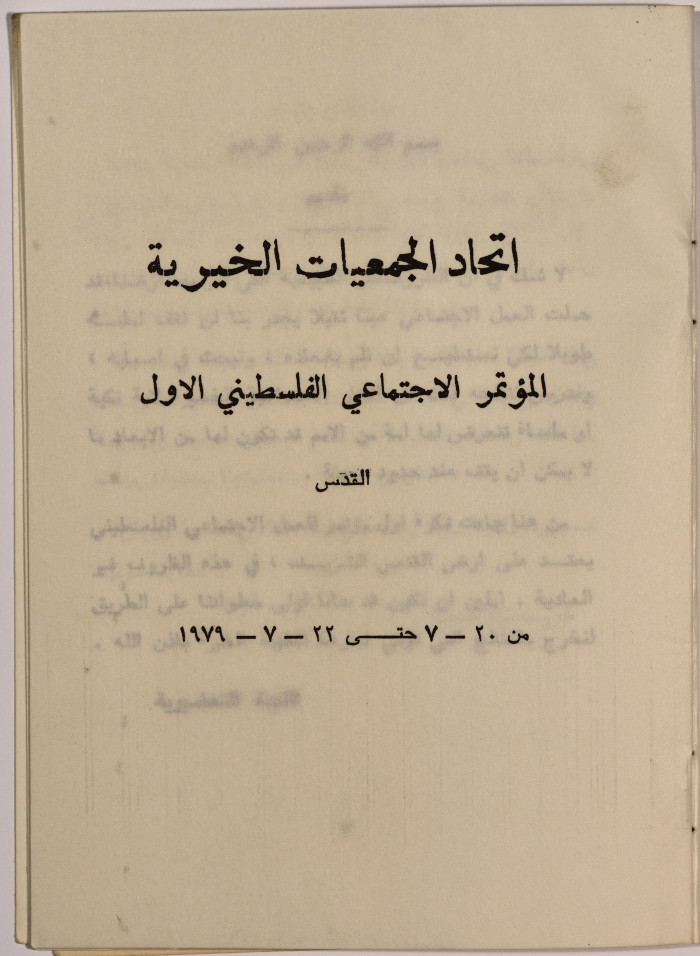 اتحاد الجمعيات الخيرية
المؤتمر الاجتماعي الفلسطيني الاول
القدس
من ٢٠ – ٧ حتى ٢٢ – ٧ – ١٩٧٩